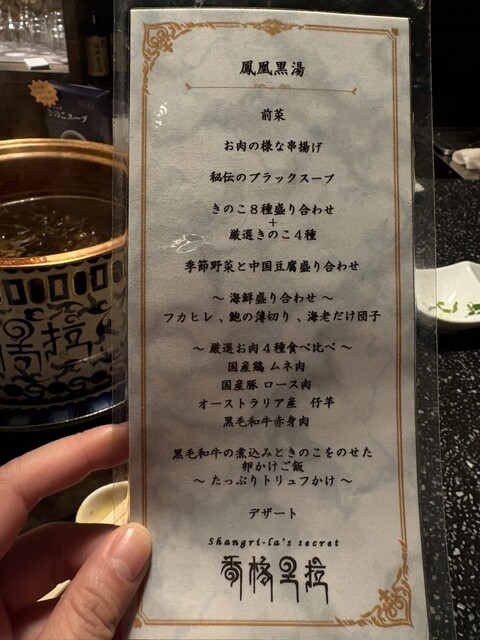 鳳凰黒湯
前菜
お肉の様な串揚げ
秘伝のブラックスープ
きのこ8種盛り合わせ
+
厳選きのこ4種
季節野菜と中国豆腐盛り合わせ
～ 海鮮盛り合わせ ～
フカヒレ、鮑の薄切り、海老だけ団子
～ 厳選お肉4種食べ比べ ～
国産鶏 ムネ肉
国産豚 ロース肉
オーストラリア産 仔羊
黒毛和牛赤身肉
黒毛和牛の煮込みときのこをのせた
卵かけご飯
～ たっぷりトリュフかけ ～
デザート
Shangri-la's secret
香格里拉
きのこスープ